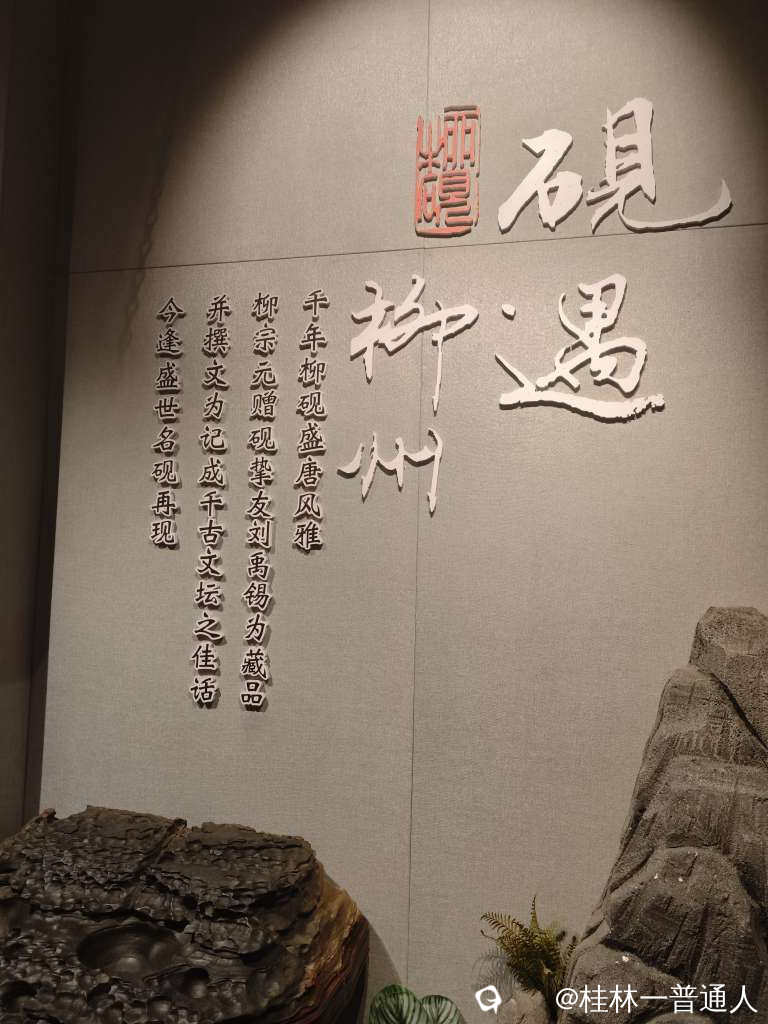 砚遇
柳州
千年柳砚盛唐风雅
柳宗元赠砚挚友刘禹锡为藏品
并撰文为记成千古文坛之佳话
今逢盛世名砚再现
@桂林一普通人